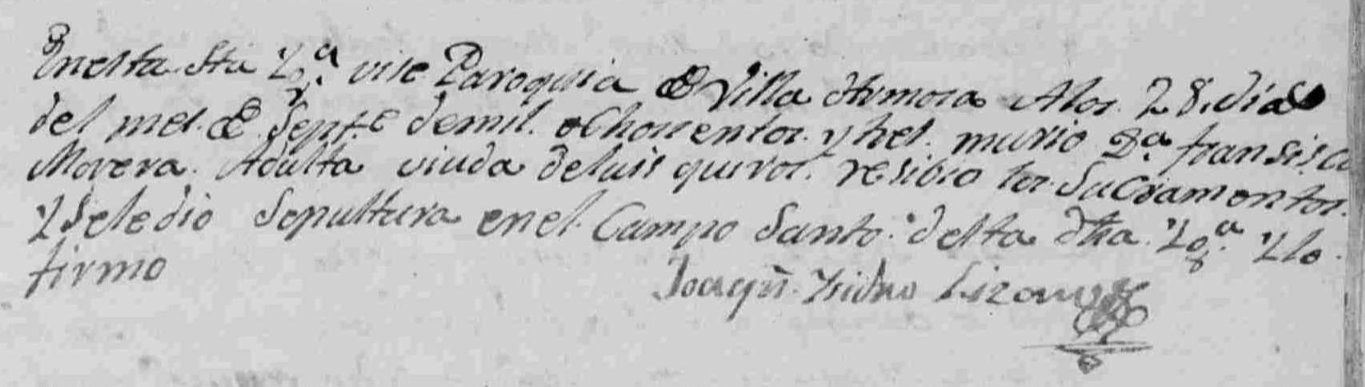 En esta Sta Yga vise Paroquia de Villa Ermosa Alos. 28. dias
del mes. de Septe demil. ochosientos. y tres. murio Da. fransisca
Morera. Adulta viuda deluis quiros. resibio los. Sacramentos.
y sele dio Sepultura en el. Campo Santo. desta dha. Yga. Ylo.
firmo
Joaqn. Ysidro Lizano